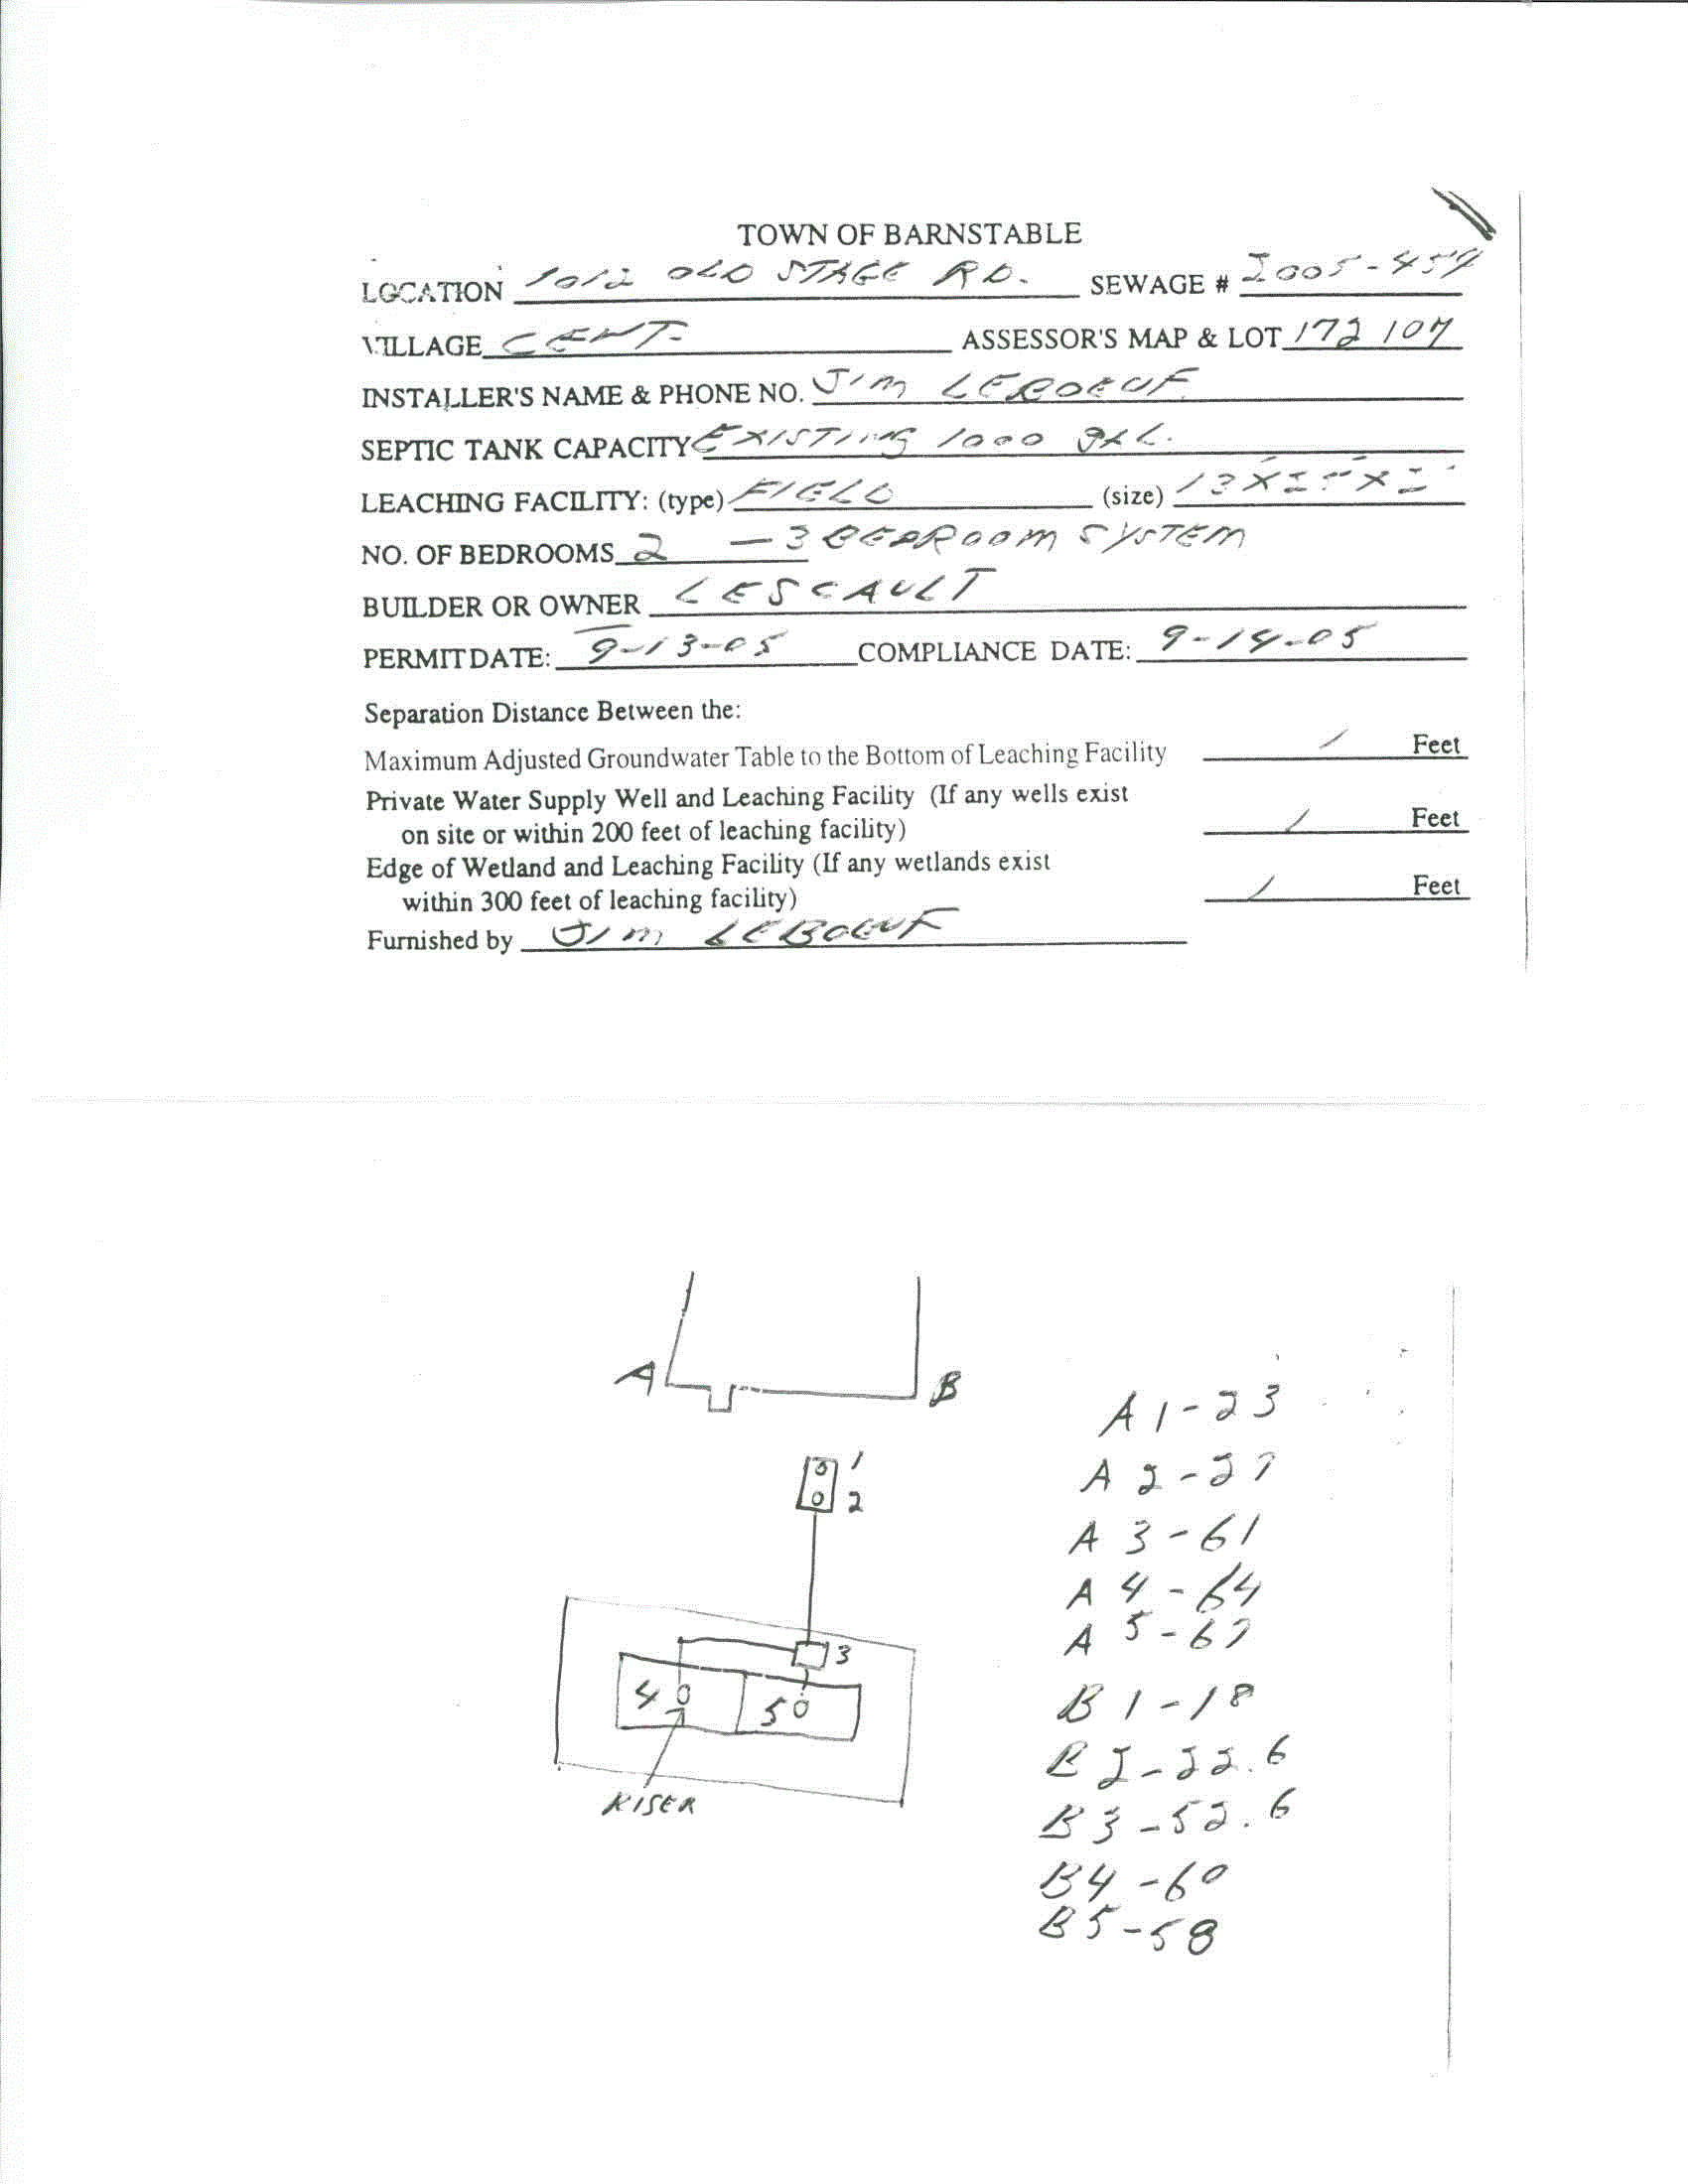 TOWN OF BARNSTABLE
LOCATION 1012 OLD STAGE RD. SEWAGE # 2005-454
VILLAGE CENT. ASSESSOR'S MAP & LOT 172 107
INSTALLER'S NAME & PHONE NO. JIM LEBOEUF
SEPTIC TANK CAPACITY EXISTING 1000 GAL.
LEACHING FACILITY: (type) FIELD (size)
NO. OF BEDROOMS 2 - 3 BEDROOM SYSTEM
BUILDER OR OWNER LESCAULT
PERMIT DATE: 9-13-05 COMPLIANCE DATE: 9-14-05
Separation Distance Between the:
Maximum Adjusted Groundwater Table to the Bottom of Leaching Facility / Feet
Private Water Supply Well and Leaching Facility (If any wells exist
on site or within 200 feet of leaching facility) / Feet
Edge of Wetland and Leaching Facility (If any wetlands exist
within 300 feet of leaching facility) / Feet
Furnished by JIM LEBOEUF
A B
1
2
3
4 5
RISER
A 1 - 23
A 2 - 27
A 3 - 61
A 4 - 64
A 5 - 67
B 1 - 18
B 2 - 22.6
B 3 - 52.6
B 4 - 60
B 5 - 58